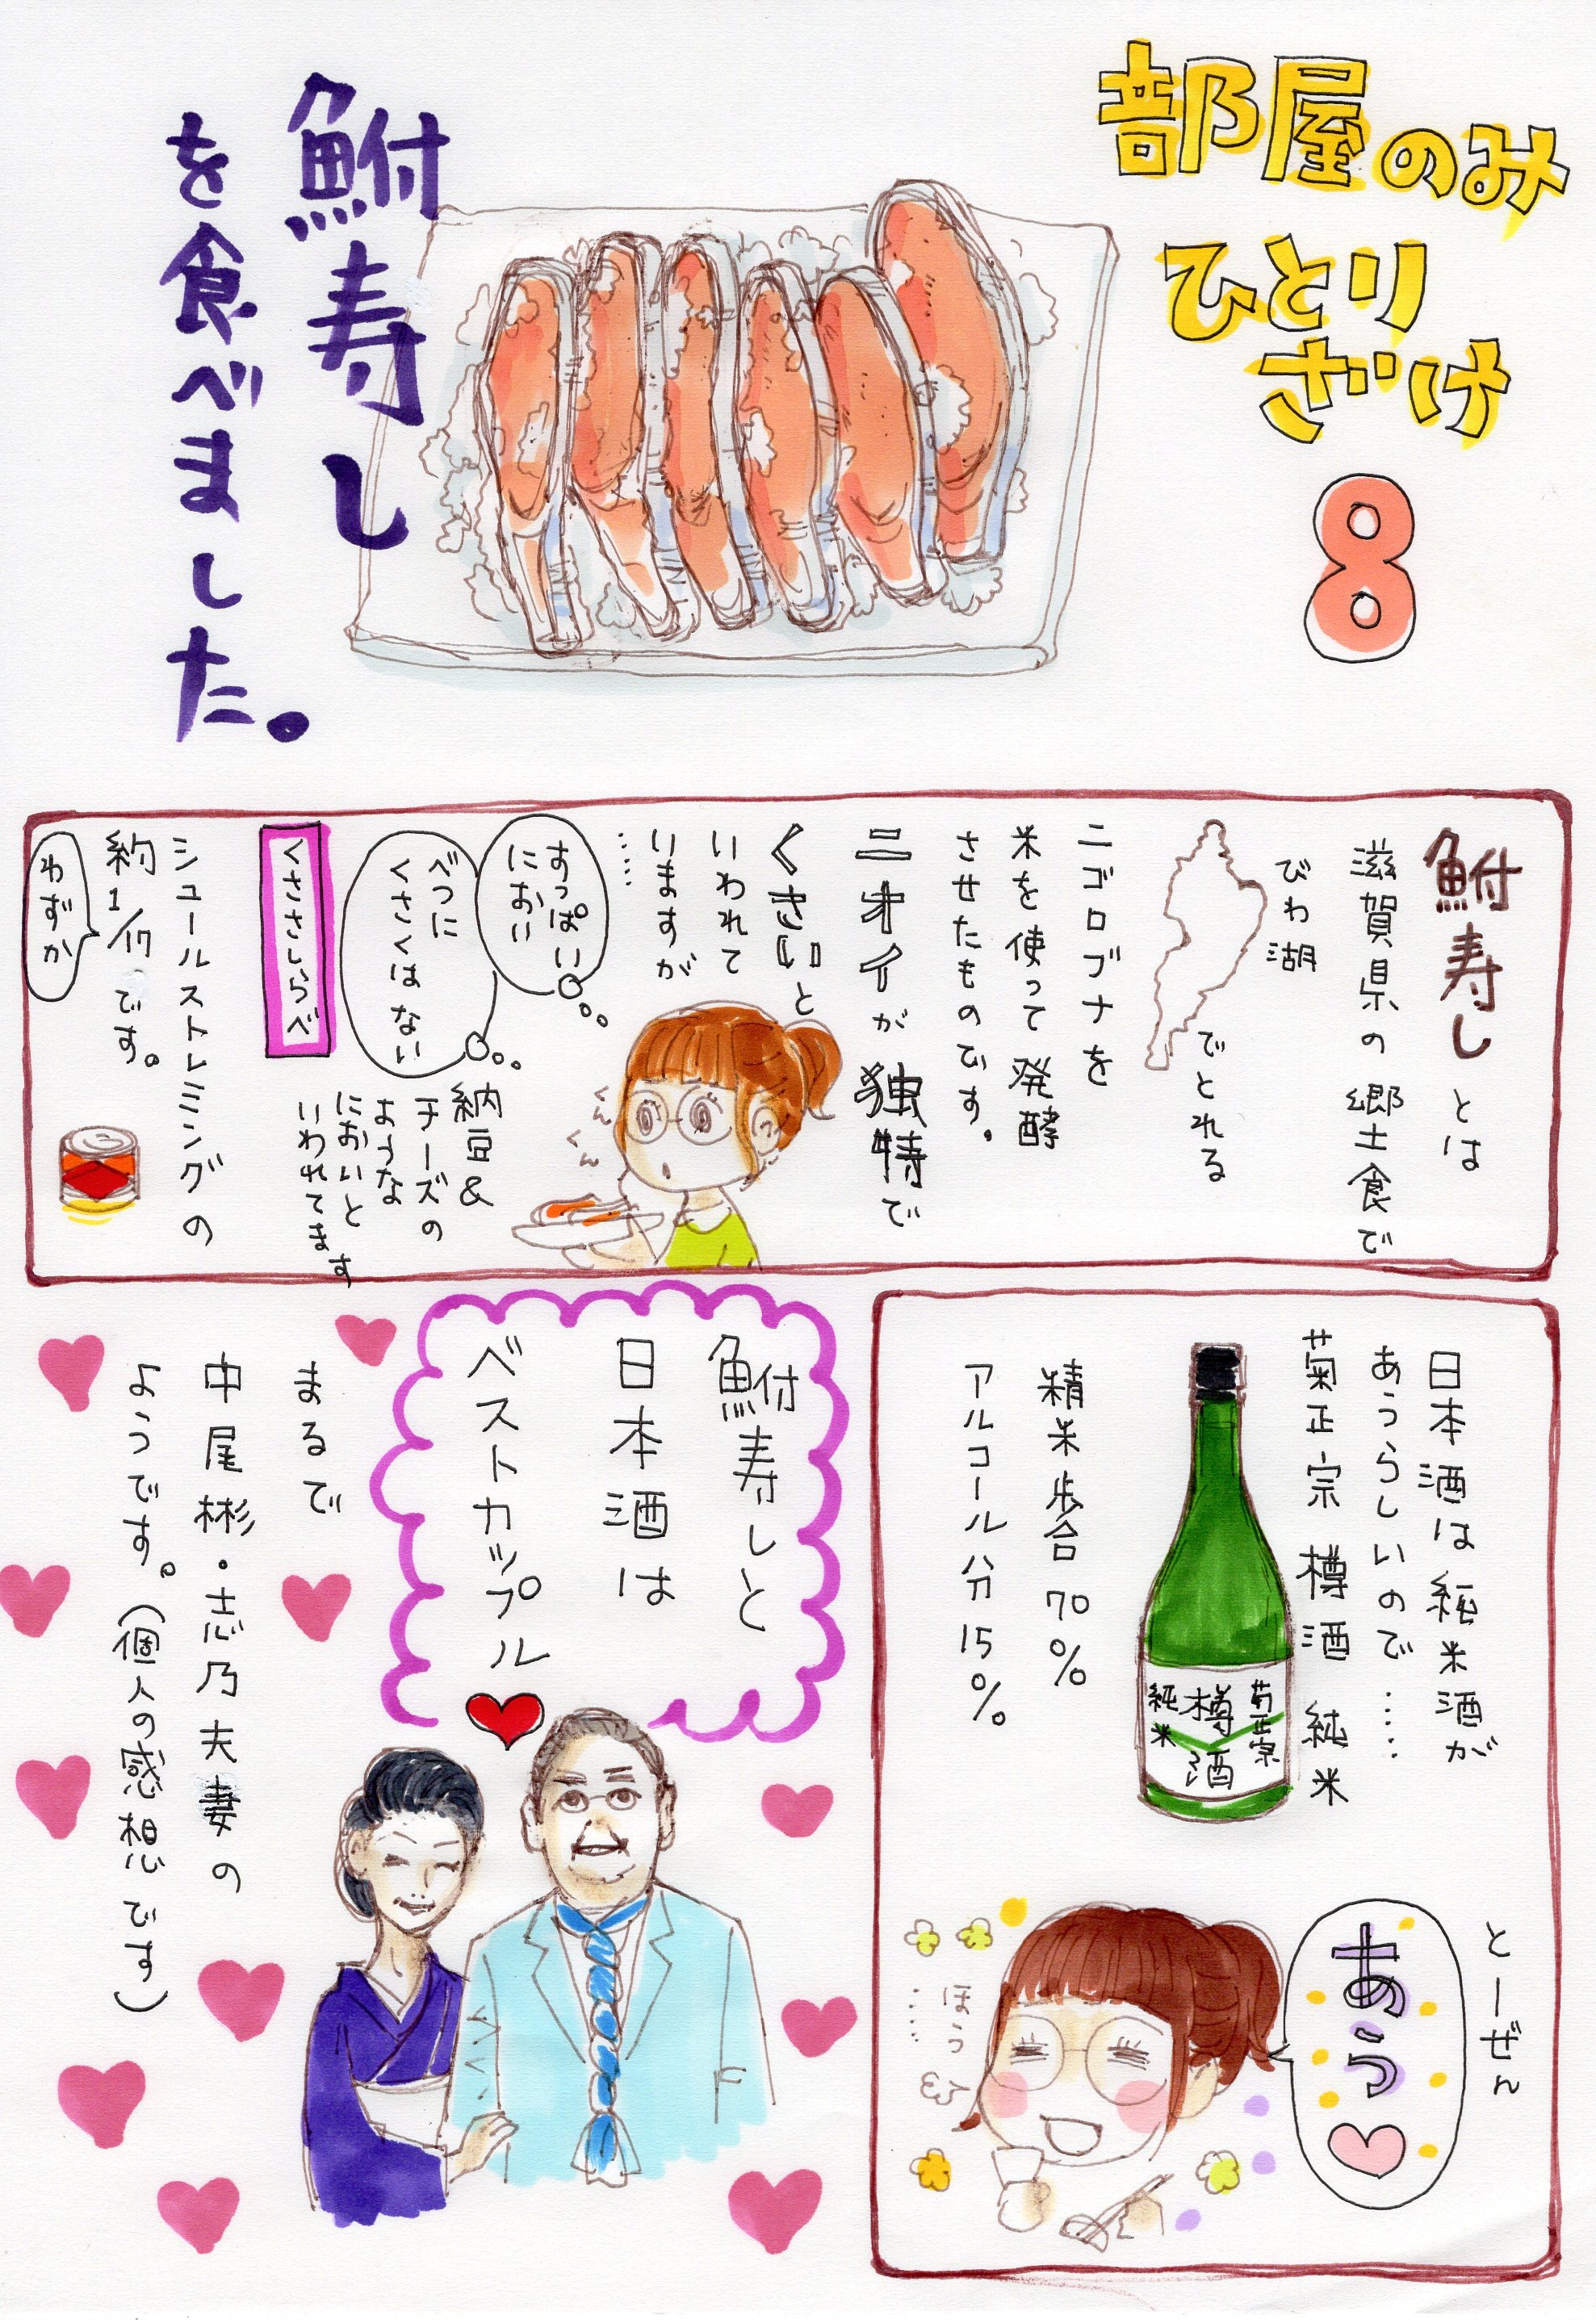 部屋のみ
ひとり
ざけ
8
鮒寿し
を食べました。
鮒寿しとは
滋賀県の郷土食で
びわ湖
でとれる
ニゴロブナを
米を使って発酵
させたものです。
ニオイが独特で
くさいと
いわれて
いますが
……
すっぱい
におい
べつに
くさくはない
くんくん
納豆&
チーズの
ような
においと
いわれてます
くささしらべ
シュールストレミングの
約1/17です。
わずか
日本酒は純米酒が
あうらしいので……
菊正宗 樽酒 純米
菊正宗
樽酒
純米
精米歩合70%
アルコール分15%
とーぜん
あう
ほうっ
……
鮒寿しと
日本酒は
ベストカップル
まるで
中尾彬・志乃夫妻の
ようです。(個人の感想です)